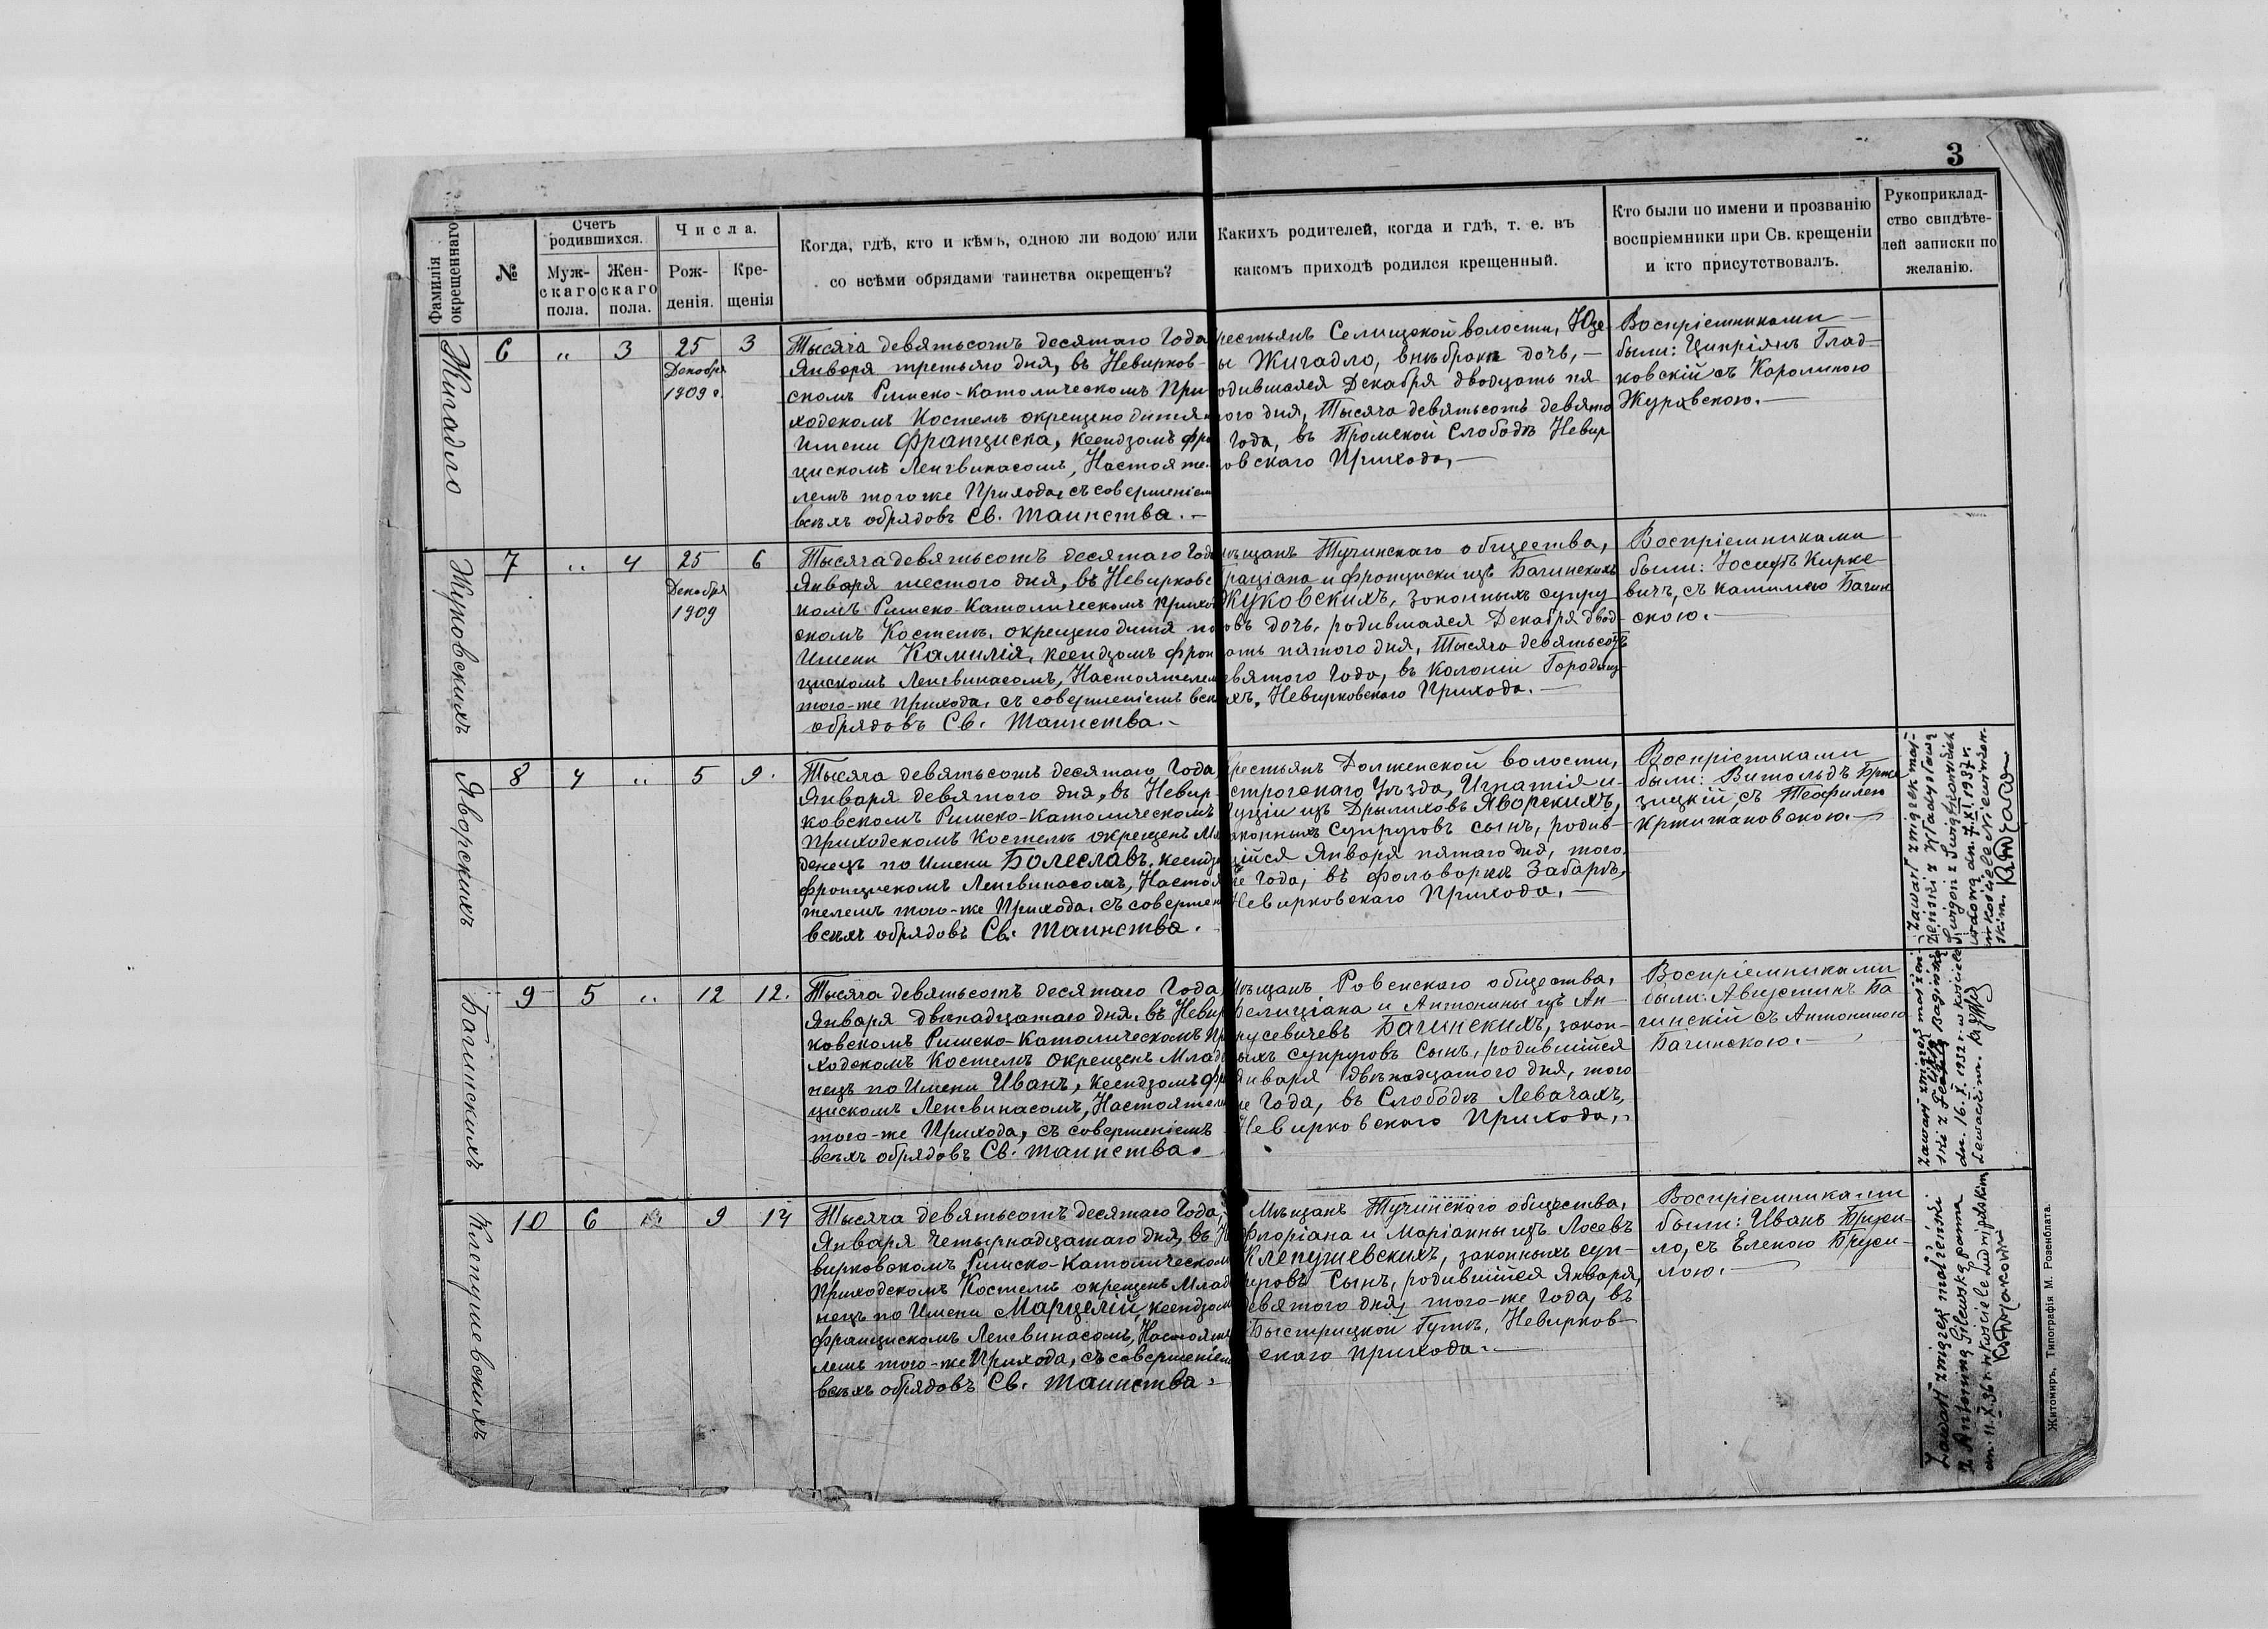 3
Фамилія окрещеннаго
№
Счетъ родившихся.
Мужскаго пола.
Женскаго пола.
Числа.
Рожденія.
Крещенія
Когда, гдѣ, кто и кѣмъ, одною ли водою или
со всѣми обрядами таинства окрещенъ?
Какихъ родителей, когда и гдѣ, т. е. въ
какомъ приходѣ родился крещенный.
Кто были по имени и прозванію
воспріемники при Св. крещеніи
и кто присутствовалъ.
Рукоприклад-
ство свидѣте-
лей записки по
желанію.
Жигадло
6 „ 3 25 3
Декабря
1909 г.
Тысяча девятьсотъ десятаго Года
Января третьяго дня, въ Невирков-
скомъ Римско-Католическомъ При
ходскомъ Костелѣ окрещено дитя
Имени Франциска, Ксендзомъ Фра
цискомъ Ленгвинасомъ, Настояте-
лемъ того же Прихода, съ совершеніем
всѣхъ обрядовъ Св. Таинства.
рестьянъ Селищской волости, Юзе-
ы Жигадло, внѣбрачн дочь, —
одившаяся Декабря двадцать пя
ого дня, Тысяча девятьсотъ девято
Года, въ Промской Слободѣ Невир
овскаго Прихода, —
Воспріемниками
были: Ципріянъ Глад-
ковскій съ Каролиною
Журавскою. —
Жуковскихъ
7 „ 4 25 6
Декабря
1909
Тысяча девятьсотъ десятаго Года
Января шестого дня, въ Невирковс
комъ Римско-Католическомъ Прихо
скомъ Костелѣ, окрещено дитя по
Имени Камилія, Ксендзомъ Фран
цискомъ Ленгвинасомъ, Настоятелем
того-же Прихода, съ совершеніемъ всѣ
обрядовъ Св. Таинства. —
ѣщанъ Тучинскаго общества,
раціана и Франциски изъ Багинскихъ
Жуковскихъ, законныхъ супру
овъ дочь, родившаяся Декабря двад-
ать пятого дня, Тысяча девятьсотъ
евятого Года, въ Колоніи Городищ-
хъ, Невирковскаго Прихода. —
Воспріемниками
были: Іосифъ Кирке-
вичъ, съ Камилією Багин
скою. —
Яворскихъ
8 4 „ 5 9.
Тысяча девятьсотъ десятаго Года
Января девятого дня, въ Невир-
ковскомъ Римско-Католическомъ
Приходскомъ Костелѣ окрещенъ Мла
денецъ по Имени Болеславъ, Ксендзо
Францискомъ Ленгвинасомъ, Настоя
телемъ того-же Прихода, съ совершен
всѣхъ обрядовъ Св. Таинства.
рестьянъ Долженской волости,
строгскаго Уѣзда, Игнатія и-
уціи изъ Дрылиховъ Яворскихъ,
аконныхъ Супруговъ сынъ, родив-
ійся Января пятаго дня, того
е Года, въ фольваркѣ Забарѣ,
Невирковскаго Прихода. —
Воспріемниками
были: Витольдъ Бржо
зицкій, съ Теофилею
Кржижановскою. —
Zawarł związek mał-
żeński z Władysławą
wdową dn. 7.XI.1937 r.
w kościele Niewirkow-
skim.
Багинскихъ
9 5 „ 12 12.
Тысяча девятьсотъ десятаго Года
Января двѣнадцатаго дня, въ Невир
ковскомъ Римско-Католическомъ При
ходскомъ Костелѣ Окрещенъ Младе
нецъ по Имени Иванъ, Ксендзомъ Фра
цискомъ Ленгвинасомъ, Настоятеле
того-же Прихода, съ совершеніемъ
всѣхъ обрядовъ Св. Таинства.
ѣщанъ Ровенскаго общества,
Фелиціана и Антонины изъ Ан-
нусевичевъ Багинскихъ, закон-
ыхъ супруговъ Сынъ, родившійся
Января двѣнадцатого дня, того
е Года, въ Слободѣ Левачахъ,
Невирковскаго Прихода,
Воспріемниками
были: Августинъ Ба
гинскій съ Антониною
Багинскою. —
Zawarł związek małżeń-
ski z Bagińską
dn. 16.X.1932 r. w kościele
Lewaczna.
Клепушевскихъ
10 6 9 14
Тысяча девятьсотъ десятаго Года,
Января Четырнадцатаго дня, въ Не
вирковскомъ Римско-Католическом
Приходскомъ Костелѣ окрещенъ Млад
нецъ по Имени Марцелій, Ксендзом
Францискомъ Ленгвинасомъ, Настояте
лемъ того-же Прихода, съ совершеніем
всѣхъ обрядовъ Св. Таинства.
Мѣщанъ Тучинскаго общества,
Флоріана и Маріанны изъ Лосевъ
Клепушевскихъ, законныхъ суп-
руговъ Сынъ, родившійся Января,
девятого дня, того-же Года, въ
Быстрицкой Гутѣ, Невирков-
скаго Прихода. —
Воспріемниками
были: Иванъ Бруси-
ло, съ Еленою Бруси-
лою. —
Zawarł związek małżeński
z Antoniną Gilewską panną
dn. 11.X.36 r. w kościele Ludwipolskim
Житомиръ, Типографія М. Розенблата.